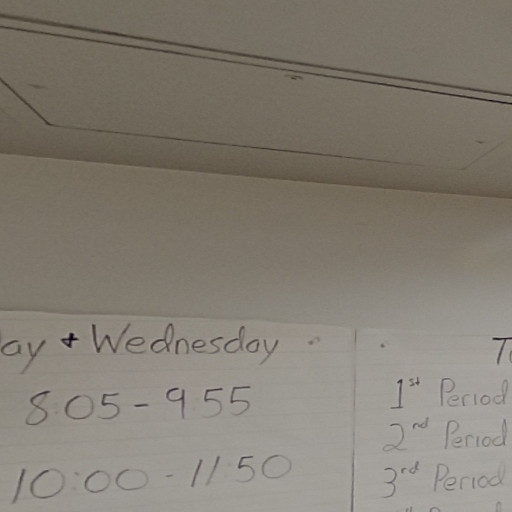 ay + Wednesday
8:05 - 9:55
10:00 - 11:50
1st Period
2nd Period
3rd Period